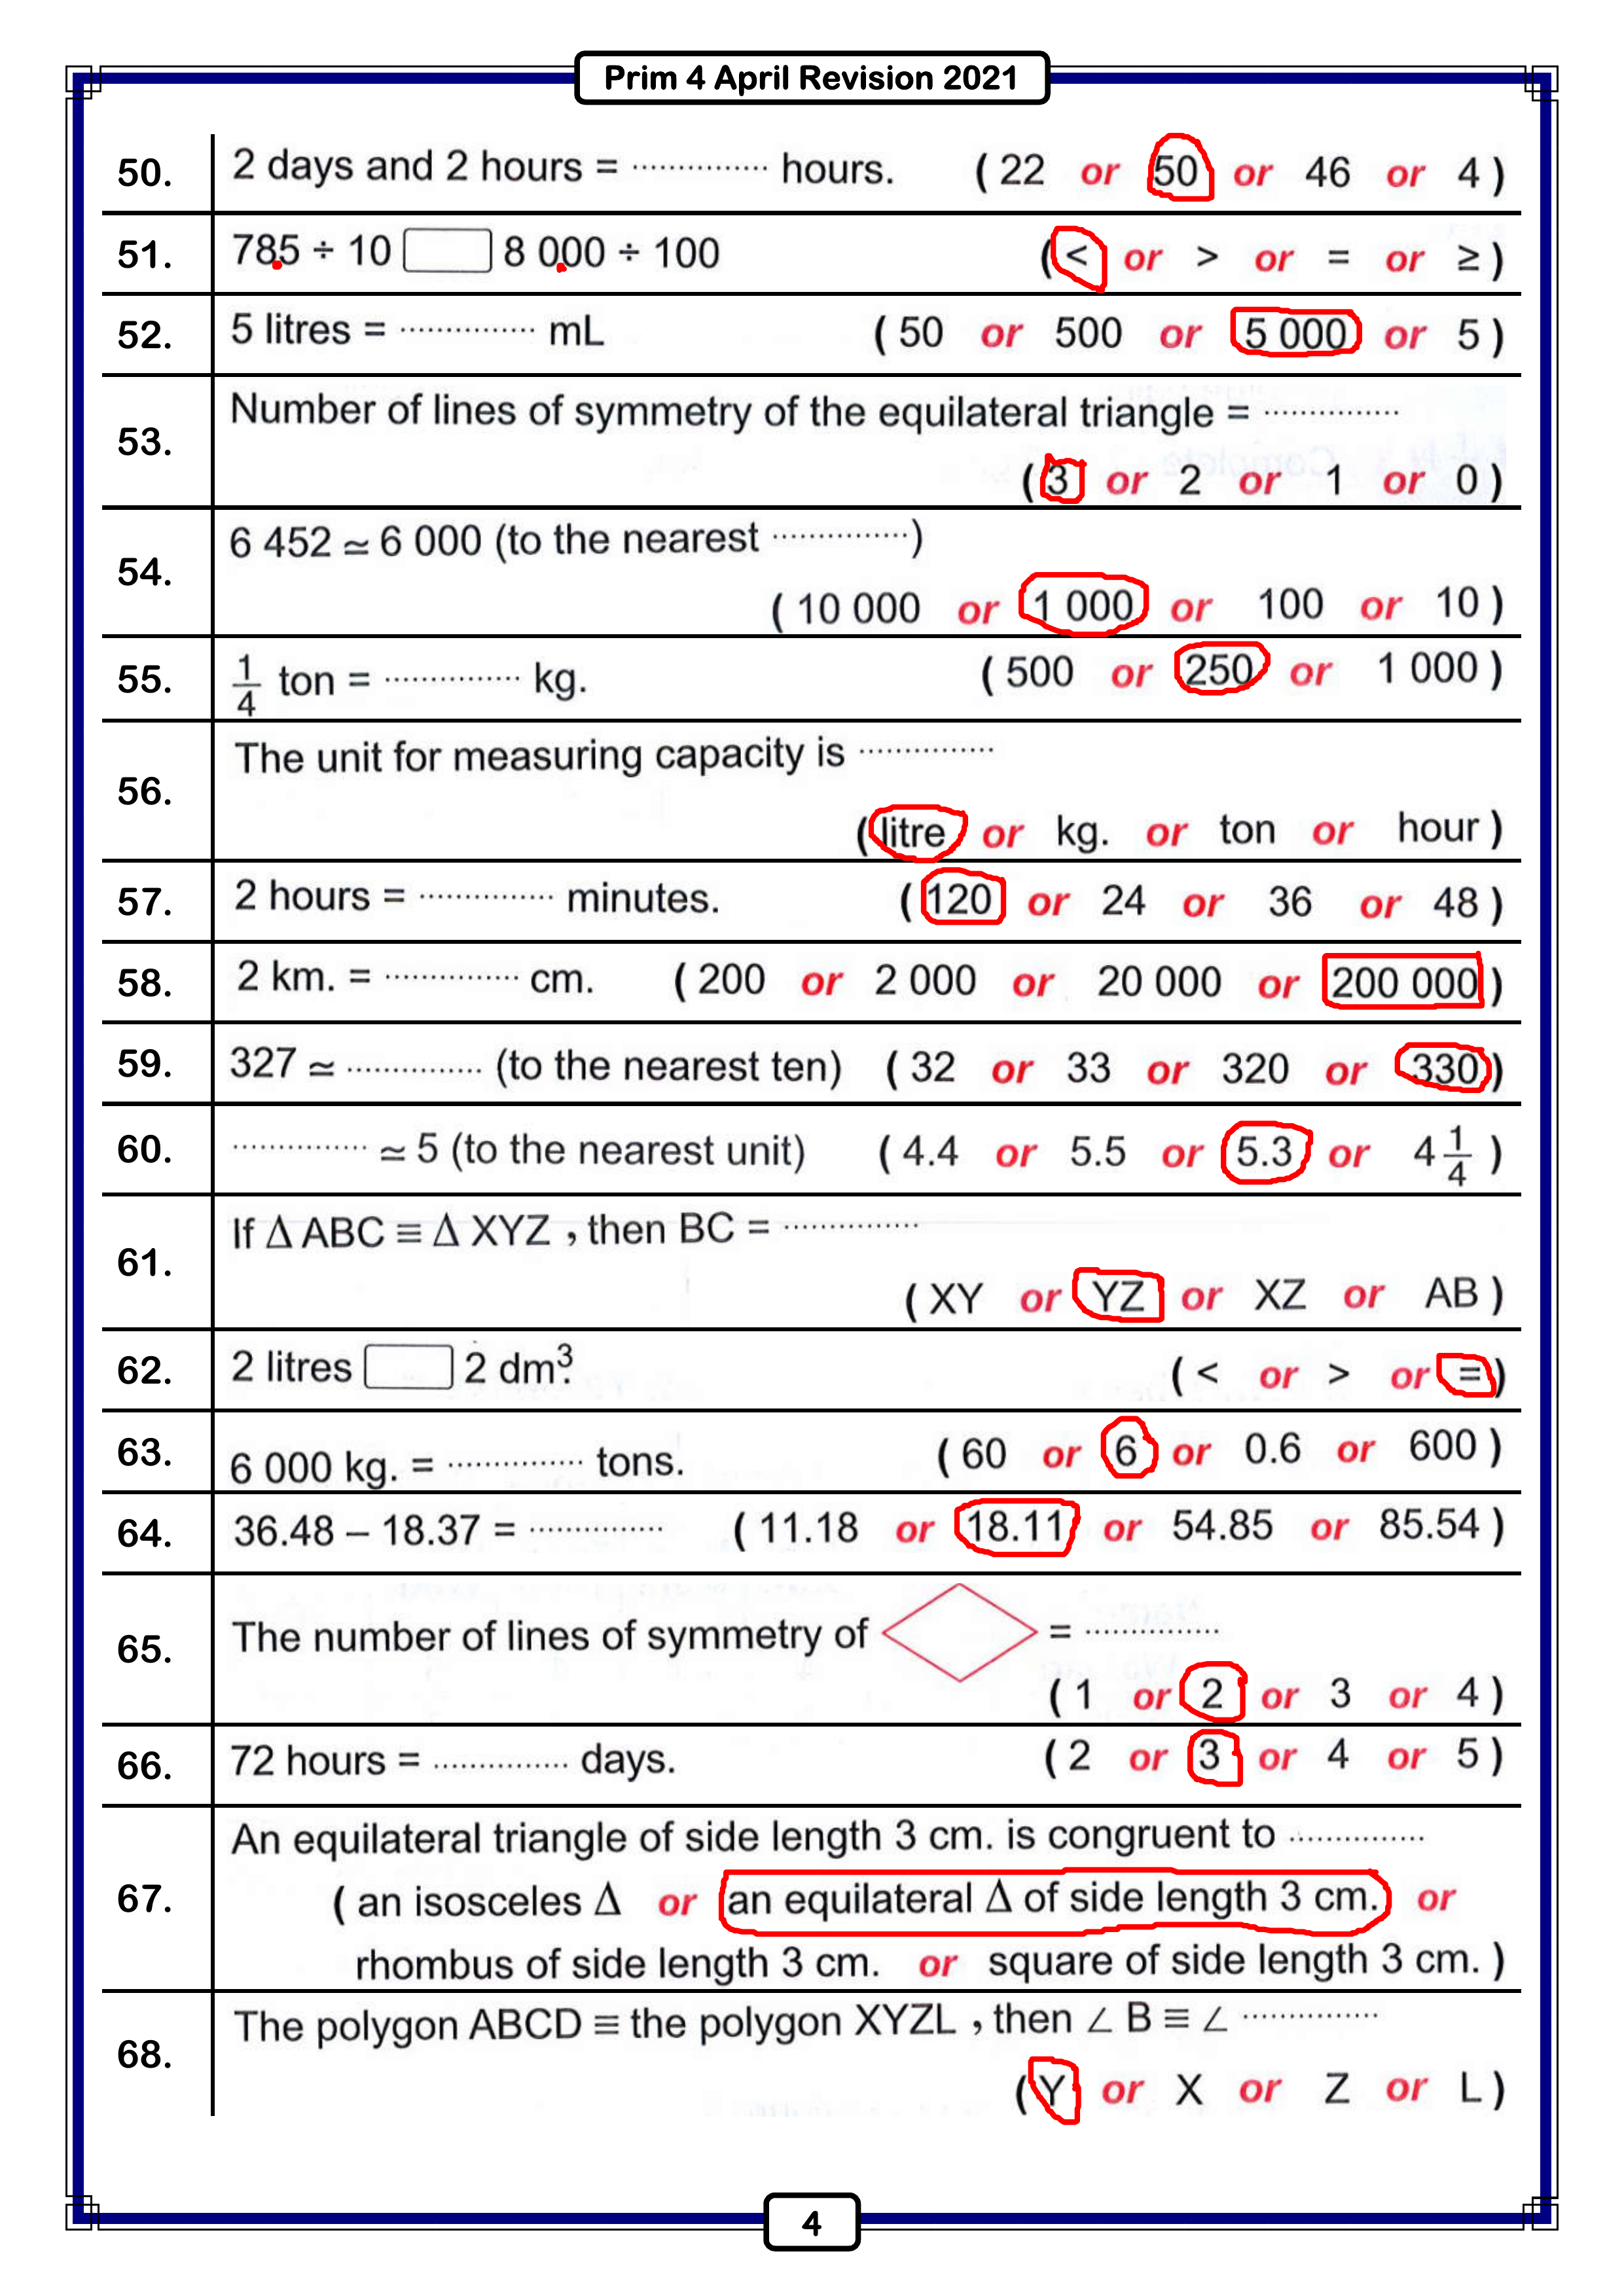 Prim 4 April Revision 2021
50. 2 days and 2 hours = ............... hours. ( 22 or 50 or 46 or 4 )
51. 785 ÷ 10 8 000 ÷ 100 ( < or > or = or ≥ )
52. 5 litres = ............... mL ( 50 or 500 or 5 000 or 5 )
53. Number of lines of symmetry of the equilateral triangle = ...............
( 3 or 2 or 1 or 0 )
54. 6 452 ≃ 6 000 (to the nearest ...............)
( 10 000 or 1 000 or 100 or 10 )
55. 1/4 ton = ............... kg. ( 500 or 250 or 1 000 )
56. The unit for measuring capacity is ...............
( litre or kg. or ton or hour )
57. 2 hours = ............... minutes. ( 120 or 24 or 36 or 48 )
58. 2 km. = ............... cm. ( 200 or 2 000 or 20 000 or 200 000 )
59. 327 ≃ ............... (to the nearest ten) ( 32 or 33 or 320 or 330 )
60. ............... ≃ 5 (to the nearest unit) ( 4.4 or 5.5 or 5.3 or 4 1/4 )
61. If Δ ABC ≡ Δ XYZ , then BC = ...............
( XY or YZ or XZ or AB )
62. 2 litres 2 dm³. ( < or > or = )
63. 6 000 kg. = ............... tons. ( 60 or 6 or 0.6 or 600 )
64. 36.48 – 18.37 = ............... ( 11.18 or 18.11 or 54.85 or 85.54 )
65. The number of lines of symmetry of = ...............
( 1 or 2 or 3 or 4 )
66. 72 hours = ............... days. ( 2 or 3 or 4 or 5 )
67. An equilateral triangle of side length 3 cm. is congruent to ...............
( an isosceles Δ or an equilateral Δ of side length 3 cm. or
rhombus of side length 3 cm. or square of side length 3 cm. )
68. The polygon ABCD ≡ the polygon XYZL , then ∠ B ≡ ∠ ...............
( Y or X or Z or L )
4